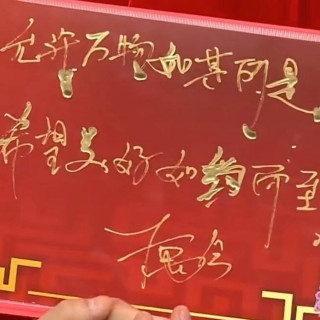 允许万物如其所是
希望美好如约而至